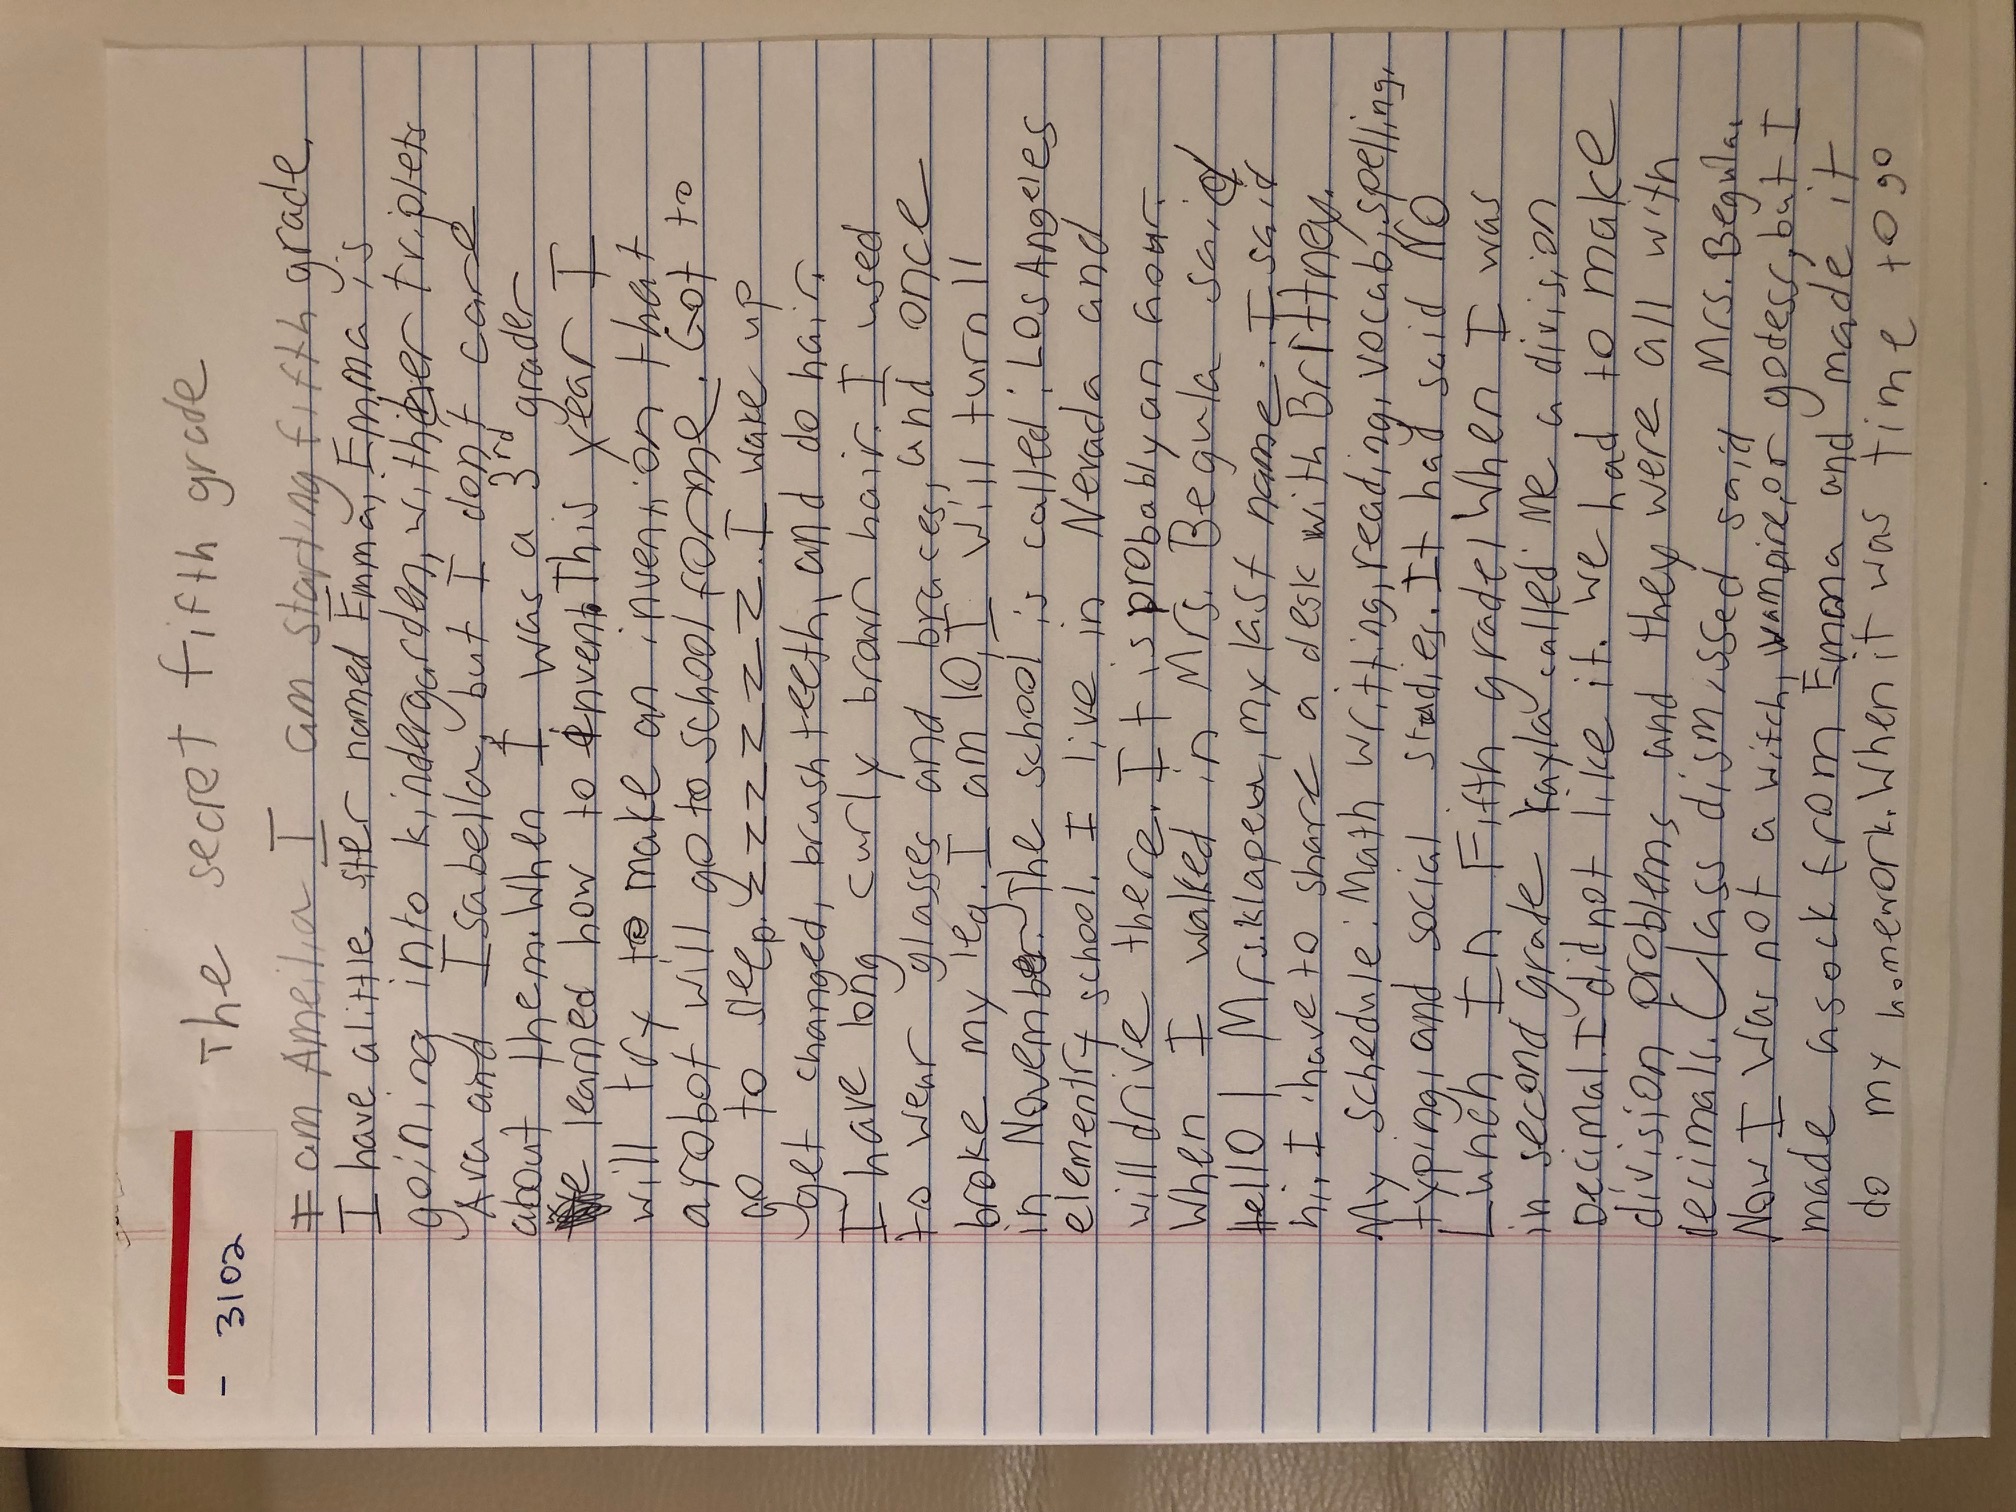 - 3102
The secret fifth grade
I am Ameilia I am starting fifth grade.
I have a little ster named Emma, Emma is
goining into kindergarden, with her triplets
Ava and Isabella, but I don't care
about them. When I was a 3rd grader
learned how to invent. This year I
will try to make an invention that
a robot will go to school for me. Got to
go to sleep. zzzzzzz. I wake up
get changed, brush teeth, and do hair.
I have long curly brown hair. I used
to wear glasses and braces, and once
broke my leg. I am 10, I will turn 11
in November. The school is called: Los Angeles
elementry school. I live in Nevada and
will drive there. It is probably an hour.
When I walked in Mrs. Begula said
Hello! Mrs. my last name. I said
hi, I have to share a desk with Brittney.
My schedule: Math writting, reading, vocab, spelling,
typing, and social studies. It had said NO
Lunch In Fifth grade! When I was
in second grade Kayla called me a division
Decimal. I did not like it. we had to make
division problems and they were all with
decimals. Class dismissed said Mrs. Begula.
Now I was not a witch, vampire, or godess, but I
made a sock from Emma and made it
do my homework. When it was time to go